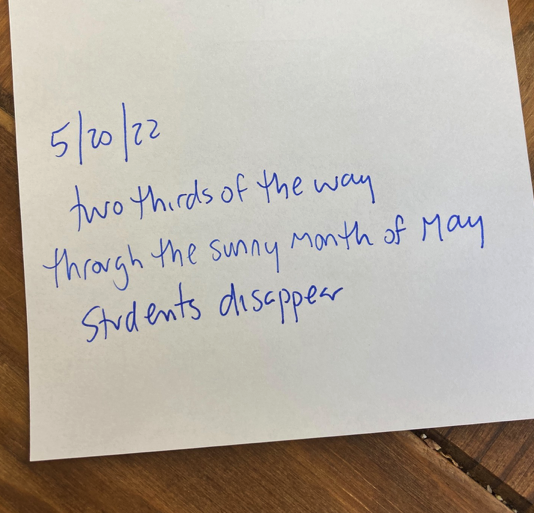 5/20/22
two thirds of the way
through the sunny month of May
Students disappear